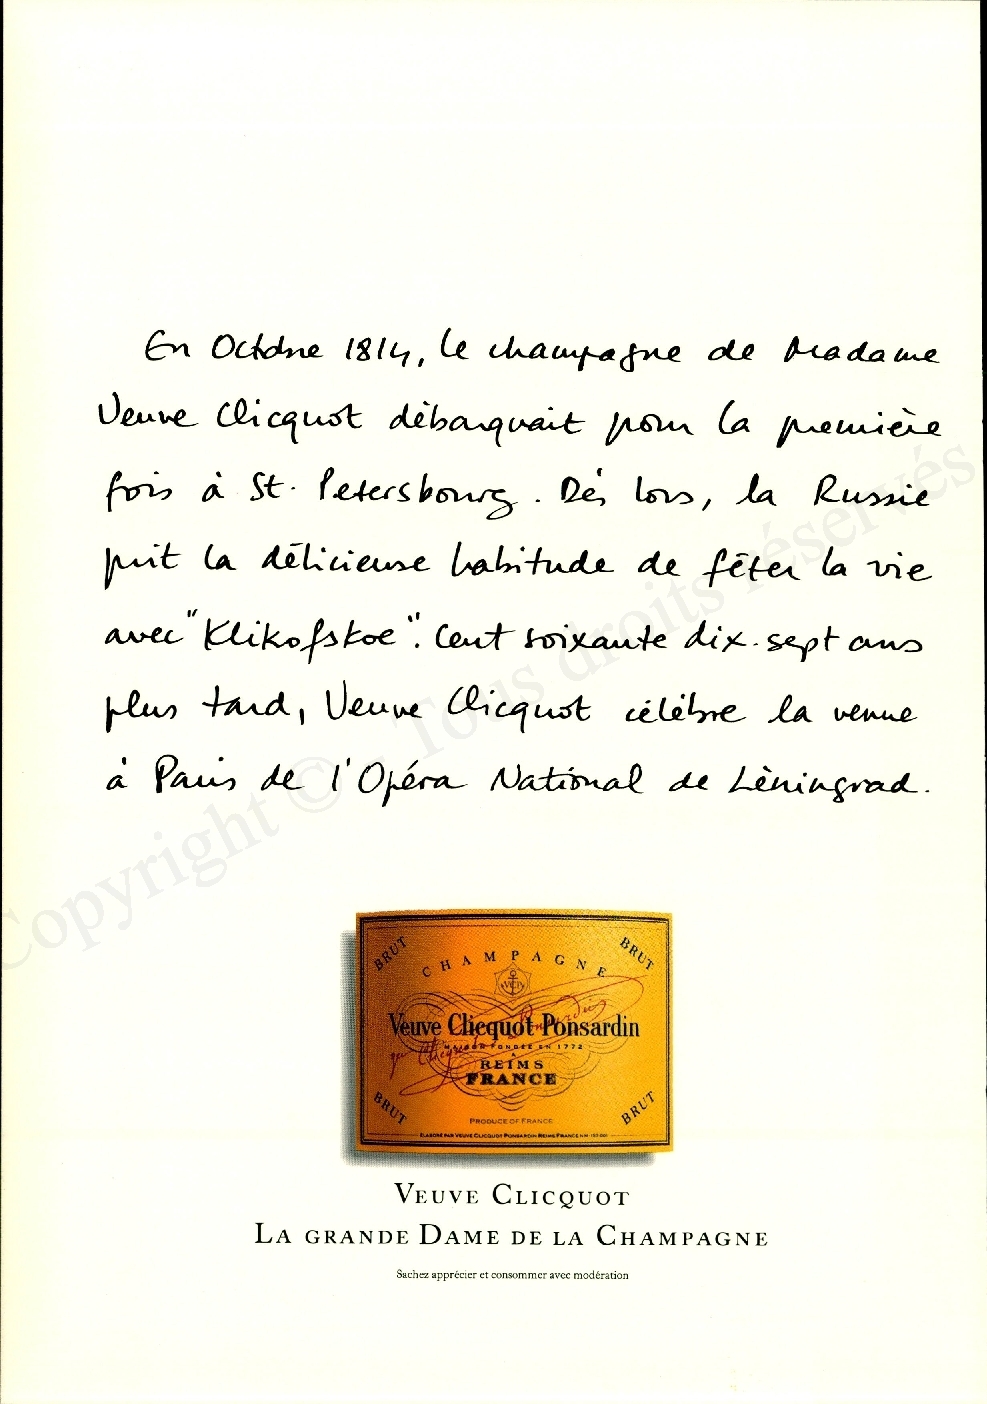 En Octobre 1814, le champagne de Madame
Veuve Clicquot débarquait pour la première
fois à St. Petersbourg. Dès lors, la Russie
prit la délicieuse habitude de fêter la vie
avec "Klikofskoe". Cent soixante dix-sept ans
plus tard, Veuve Clicquot célèbre la venue
à Paris de l'Opéra National de Léningrad.
Copyright © - Tous droits réservés
BRUT BRUT
CHAMPAGNE
VCP
Veuve Clicquot Ponsardin
MAISON FONDÉE EN 1772
A
REIMS
FRANCE
BRUT BRUT
PRODUCE OF FRANCE
ELABORÉ PAR VEUVE CLICQUOT PONSARDIN REIMS FRANCE
VEUVE CLICQUOT
LA GRANDE DAME DE LA CHAMPAGNE
Sachez apprécier et consommer avec modération